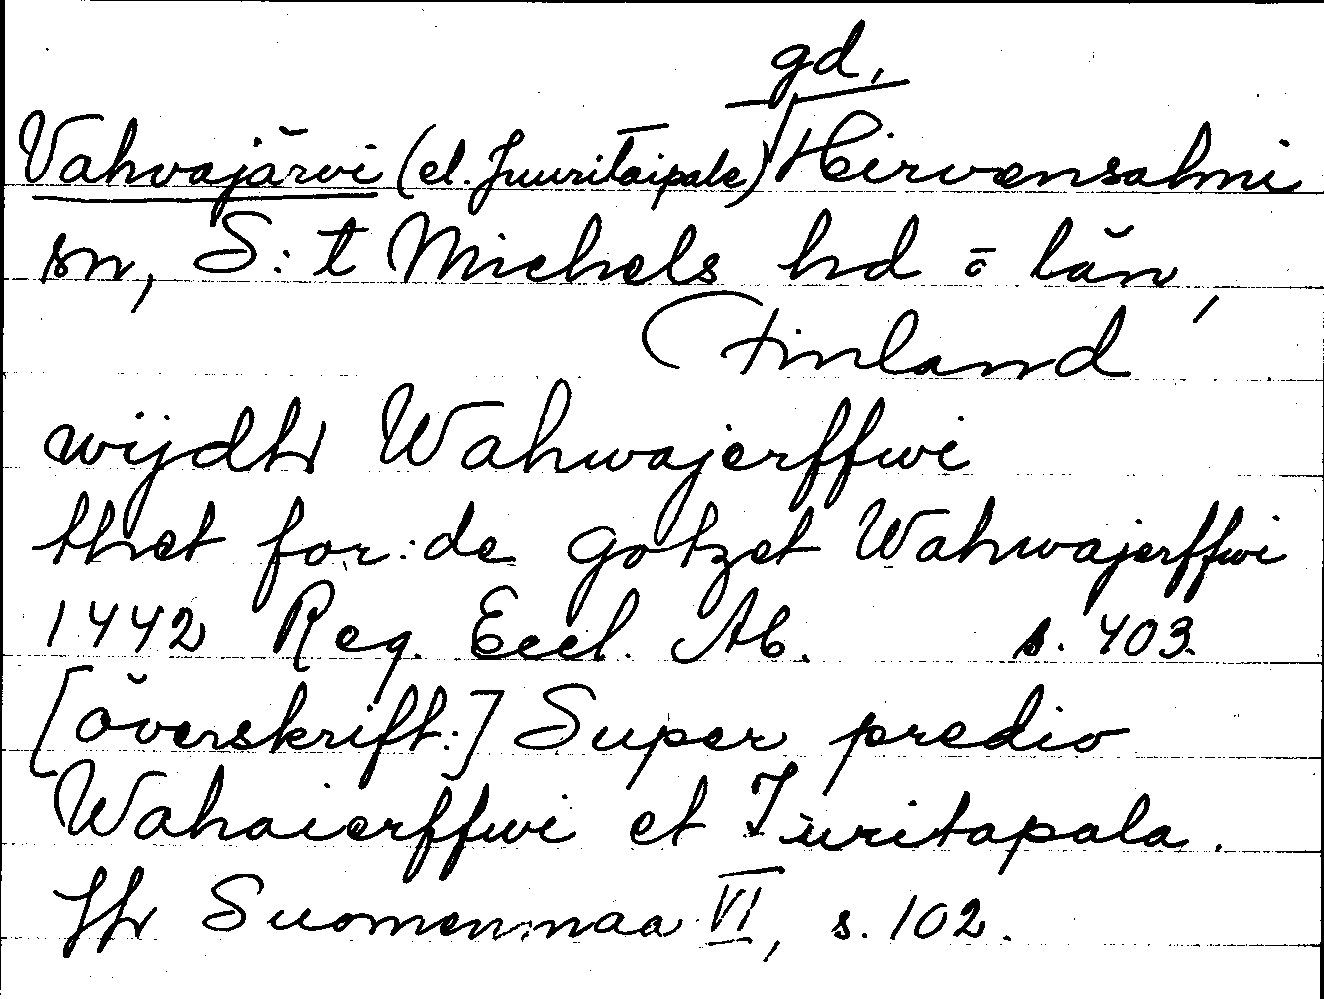 gd.
Vahvajärvi (el. Juuritaipale) Hirvensalmi
sn, S:t Michels hd o län,
Finland
wijdhr Wahwajerffwi
thet for:de gotzet Wahwajerffwi
1442 Reg. Eccl. Ab. s. 403.
[överskrift:] Super predio
Wahaierffwi et Juritapala.
Jfr Suomenmaa VI, s. 102.